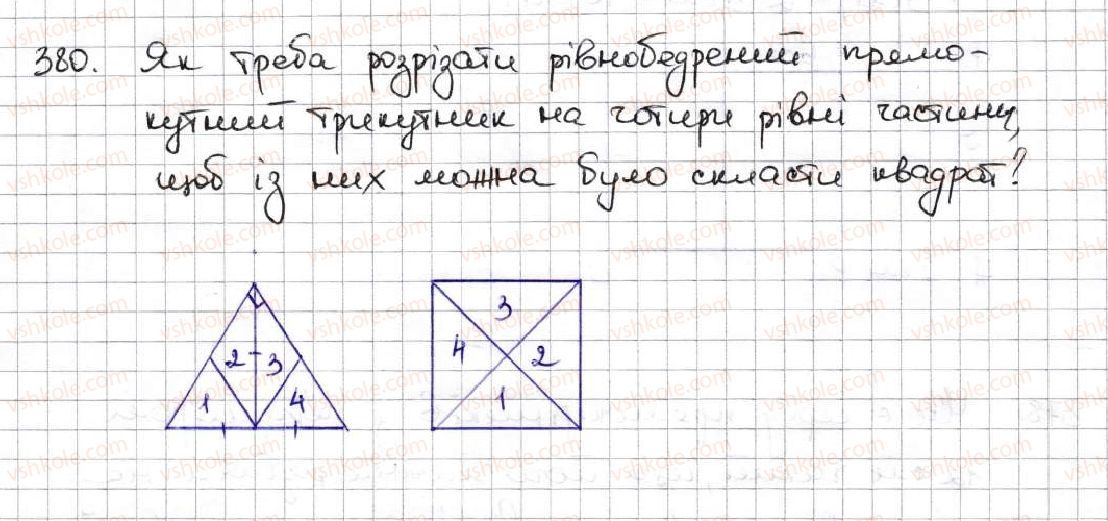 380. Як треба розрізати рівнобедрений прямо-
кутний трикутник на чотири рівні частини,
щоб із них можна було скласти квадрат?
3
2 3
4 2
1 4
1
vshkole.com